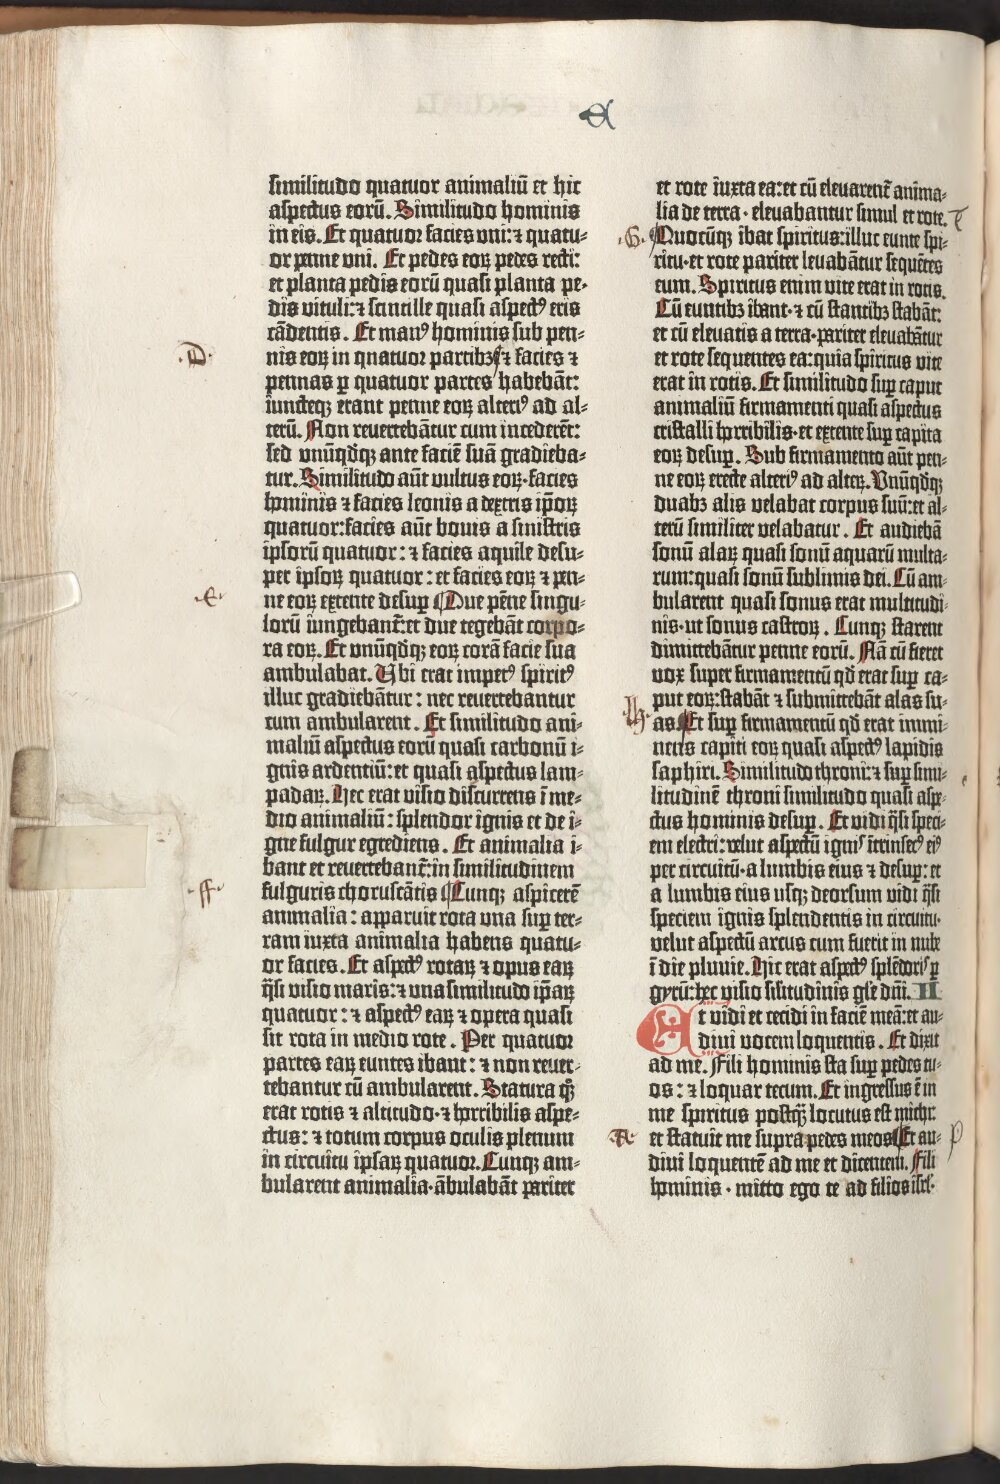 similitudo quatuor animaliū et hic
aspectus eorū. Similitudo hominis
in eis. Et quatuor facies uni: ⁊ quatu-
or penne uni. Et pedes eoꝝ pedes recti:
et planta pedis eorū quasi planta pe-
dis vituli: ⁊ scintille quasi aspectꝰ eris
cādentis. Et manꝰ hominis sub pen-
D.
nis eoꝝ in quatuor partibꝫ ⁊ facies ⁊
pennas ꝑ quatuor partes habebāt:
iuncteqꝫ erant penne eoꝝ alteriꝰ ad al-
terū. Non reuertebātur cum incederēt:
sed unūqdꝙ ante faciē suā gradieba-
tur. Similitudo aūt vultus eoꝝ: facies
hominis ⁊ facies leonis a dextris ipoꝝ
quatuor: facies aūt bouis a sinistris
ipsorū quatuor: ⁊ facies aquile desu-
per ipsoꝝ quatuor: et facies eoꝝ ⁊ pen-
E
ne eoꝝ extente desuꝑ Due pēne singu-
lorū iungebant̄: et due tegebāt corpo-
ra eoꝝ. Et unūqdꝙ eoꝝ corā facie sua
ambulabat. Ubi erat impetꝰ spiritꝰ
illuc gradiebātur: nec reuertebantur
cum ambularent. Et similitudo ani-
maliū aspectus eorū quasi carbonū i-
gnis ardentiū: et quasi aspectus lam-
padaꝝ. Hec erat visio discurrens ī me-
dio animaliū: splendor ignis et de i-
gne fulgur egrediens. Et animalia i-
bant et reuertebant̄: in similitudinem
ff
fulguris choruscātis Cunqꝫ aspicerē
animalia: apparuit rota una suꝑ ter-
ram iuxta animalia habens quatu-
or facies. Et aspectꝰ rotaꝝ ⁊ opus eaꝝ
q̄si visio maris: ⁊ una similitudo ip̄aꝝ
quatuor: ⁊ aspectꝰ eaꝝ ⁊ opera quasi
sit rota in medio rote. Per quatuor
partes eaꝝ euntes ibant: ⁊ non reuer-
tebantur cū ambularent. Statura qꝫ
erat rotis ⁊ altitudo ⁊ horribilis aspe-
ctus: ⁊ totum corpus oculis plenum
in circuitu ipsaꝝ quatuor. Cunqꝫ am-
bularent animalia· ābulabāt pariter
et rote iuxta ea: et cū eleuarent̄ anima-
lia de terra· eleuabantur simul et rote.
G.
Quocūqꝫ ibat spiritus: illuc eunte spi-
ritu· et rote pariter leuabātur sequētes
eum. Spiritus enim vite erat in rotis.
Cū euntibꝫ ibant· ⁊ cū stantibꝫ stabāt:
et cū eleuatis a terra· pariter eleuabātur
et rote sequentes ea: quia spiritus vite
erat in rotis. Et similitudo suꝑ caput
animaliū firmamenti quasi aspectus
cristalli horribilis· et extente suꝑ capita
eoꝝ desuꝑ. Sub firmamento aūt pen-
ne eoꝝ erecte alteriꝰ ad alteꝝ. Unūqdꝙ
duabꝫ alis velabat corpus suū: et al-
terū similiter velabatur. Et audiebā
sonū alaꝝ quasi sonū aquarū multa-
rum: quasi sonū sublimis dei. Cū am-
bularent quasi sonus erat multitudi-
nis· ut sonus castroꝝ. Cunqꝫ starent
dimittebātur penne eorū. Nā cū fieret
vox super firmamentū qd̄ erat suꝑ ca-
put eoꝝ: stabāt ⁊ submittebāt alas su-
H.
as Et suꝑ firmamentū qd̄ erat immi-
nens capiti eoꝝ quasi aspectꝰ lapidis
saphiri. Similitudo throni: ⁊ suꝑ simi-
litudinē throni similitudo quasi aspe-
ctus hominis desuꝑ. Et vidi q̄si speci-
em electri: velut aspectū ignis ītrinsecꝰ eiꝰ
per circuitū· a lumbis eius ⁊ desuꝑ: et
a lumbis eius usqꝫ deorsum vidi q̄si
speciem ignis splendentis in circuitu·
velut aspectū arcus cum fuerit in nube
ī die pluuie. Hic erat aspectꝰ splēdoris ꝑ
gyrū: hec visio silitudinis gl̄e dn̄i. II
At vidi et cecidi in faciē meā: et au-
diui vocem loquentis. Et dixit
ad me. Fili hominis sta suꝑ pedes tu-
os: ⁊ loquar tecum. Et ingressus ē in
me spiritus postqꝫ locutus est michi:
A.
et statuit me supra pedes meos Et au-
diui loquentē ad me et dicentem. Fili
hominis· mitto ego te ad filios isrl·